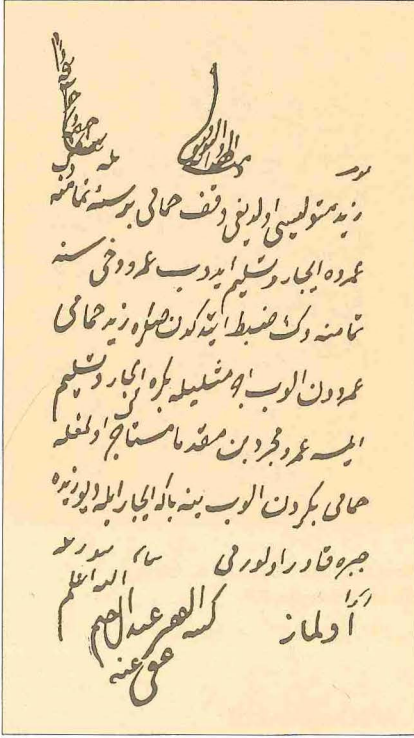 زيد متوليسى اولديغى وقف حمامى بر سنه تمامنه
عمروه ايجار و تسليم ايدوب عمرو دخى سنه
تمامنه دك ضبط ايتدكدن صكره زيد حمامى
عمرودن الوب اجر مثليله بكره ايجار و تسليم
ايلسه عمرو مجرد بن مقدما مستأجر اولمغله
حمامى بكردن الوب ينه بكا ايجار ايله ديو زيده
جبره قادر اولورمى
الله اعلم
اولماز
كتبه الفقير عبد الرحيم
عفى عنه